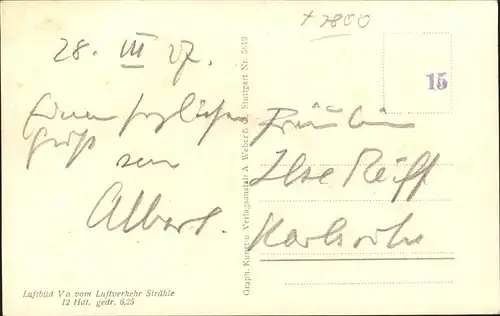 + 7800
28. III 27.
Einen herzlichen
Gruß
von
Albert.
15
Fräulein
Ilse Reiff
Karlsruhe
Graph. Kunst u. Verlagsanstalt A. Weber & Stuttgart Nr. 5619
Luftbild V a vom Luftverkehr Strähle
12 Hdt. gedr. 6,25